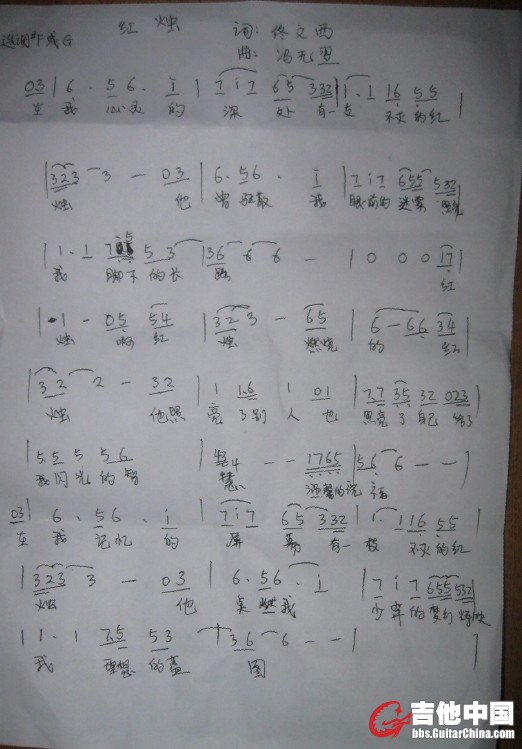 红烛
词: 佟文西
选调1=F或G
曲: 冯
03 | 6 . 56 . i | 7 i 7 65 332 | 1 . 1 16 55 |
在 我 心灵 的 深 处 有一支 不灭的红
| 323 3 - 03 | 6. 56 . i | 7 i 7 655 532
烛 他 曾驱散 我 眼前的 迷雾 照亮
| 1 . 1 75 53 | 36 6 6 - | 0 0 0 17 |
我 脚下的长 路 红
| 1 - 05 54 | 32 3 - 65 | 6 - 66 34 |
烛 啊 红 烛 燃烧 的 红
| 32 2 - 32 | 1 1.6 1 01 | 7.7 35 32 023 |
烛 他照 亮了别人 也 照亮了自己 给了
| 5.5 5 56 | 4 - - 1765 | 56 6 - - |
我闪光的智 慧 温馨的祝福
03 | 6 . 56 . i | 7 i 7 65 332 | 1 . 1 16 55 |
在 我 记忆 的 屏 幕 有一枝 不灭的红
| 323 3 - 03 | 6. 56 . i | 7 i 7 655 532 |
烛 他 点燃我 少年的梦幻
| 1 . 1 7.5 53 | 36 6 - - |
我 理想的蓝 图
吉他中国
bbs.GuitarChina.com